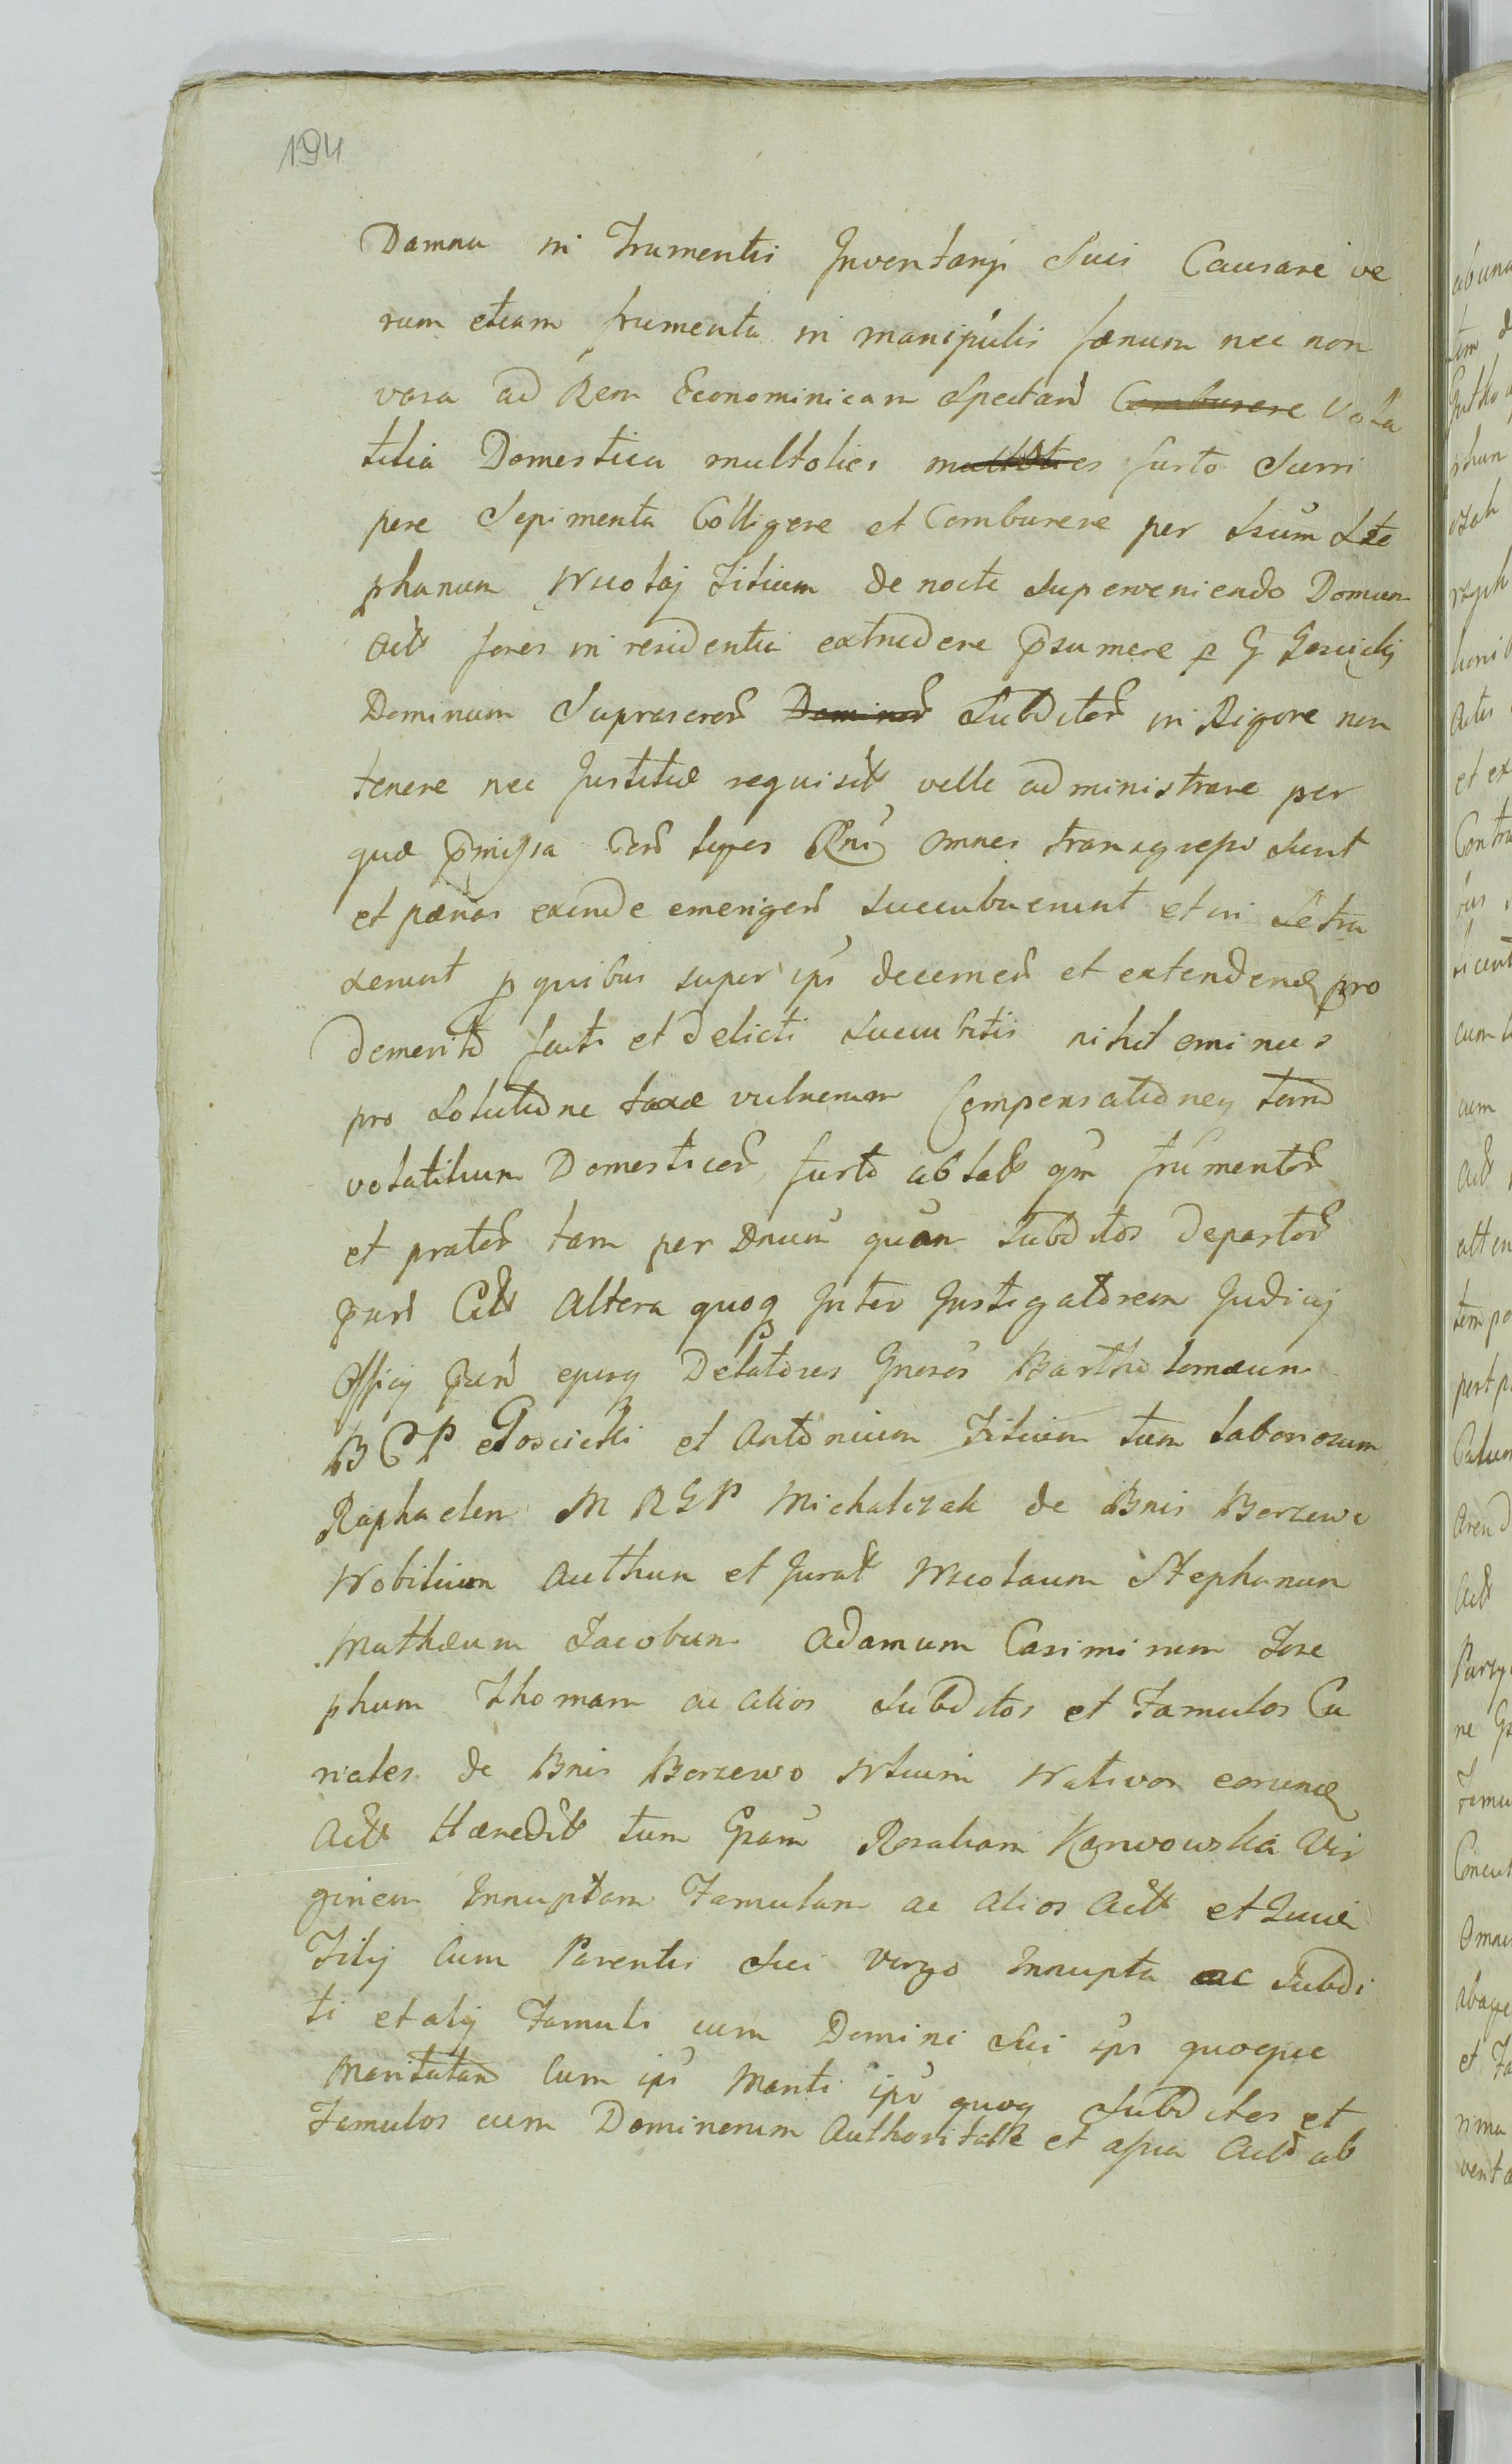 194
Damna in Frumentis Inventarij Suis Causare ve
rum etiam frumenta in manipulis fænum nec non
vasa ad Rem Econominicam Spectand Comburere Vola
tilia Domestica multoties multoties furto Surri
pere Sepimenta Colligere et Comburere per Suum Ste
phanum Nicolaj Filium de nocte superveniendo Domum
Act fores in residentia extrudere p̄sumere p G Gościcki
Dominum Suprascror Dominor Subditor in Rigore non
tenere nec Justitiæ requisit velle administrare per
quæ p̄missa leges Rni omnes transgressi sunt
et pænas exinde emergen succubuerunt et in se tra
xerunt p quibus super ips decernen et extenden pro
demerito facti et delicti succubitis nihilominus
pro Solutione taxæ vulnerum Compensationeq tam
volatilium Domesticor furto ablat qm frumentor
et prator tam per Dnum quam Subditos depastor
part Cit Altera quoq Inter Instigatorem Judicij
Officij ejusq Delatores Gnosos Bartholomæum
B C P Gościcki et Antonium Filium tum laboriosum
Raphaelem M R G P Michalczak de Bnis Borzewo
Nobilium Authum et Jurat Nicolaum Stephanum
Mathæum Jacobum Adamum Casimirum Jose
phum Thomam ac alios Subditos et Famulos Cu
riales de Bnis Borzewo Nativos eorund
Act Hæredit tum Gsam Rosaliam Karwowska Vir
ginem Innuptam Famulam ac alios Act et
Filij Cum Parentis Sui virgo Innupta ac Subdi
ti et alij Famuli cum Domini Sui ips quoque
Maritatam Cum ips Mariti ips quoq Subditos et
Famulos cum Dominorum Authoritate et Act ab